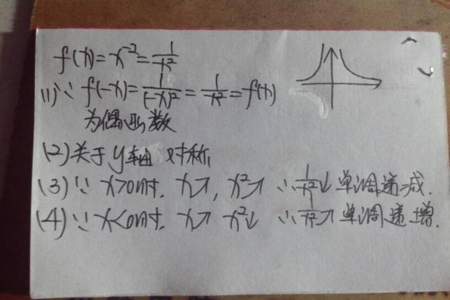 f(x)=x⁻²=1/x²
(1)∵ f(-x)=1/(-x)²=1/x²=f(x)
为偶函数
(2)关于y轴 对称
(3)∵ x>0时. x↗, x²↗ ∴1/x²↓ 单调递减.
(4)∵ x<0时. x↗ x²↓ ∴1/x²↗ 单调递增.